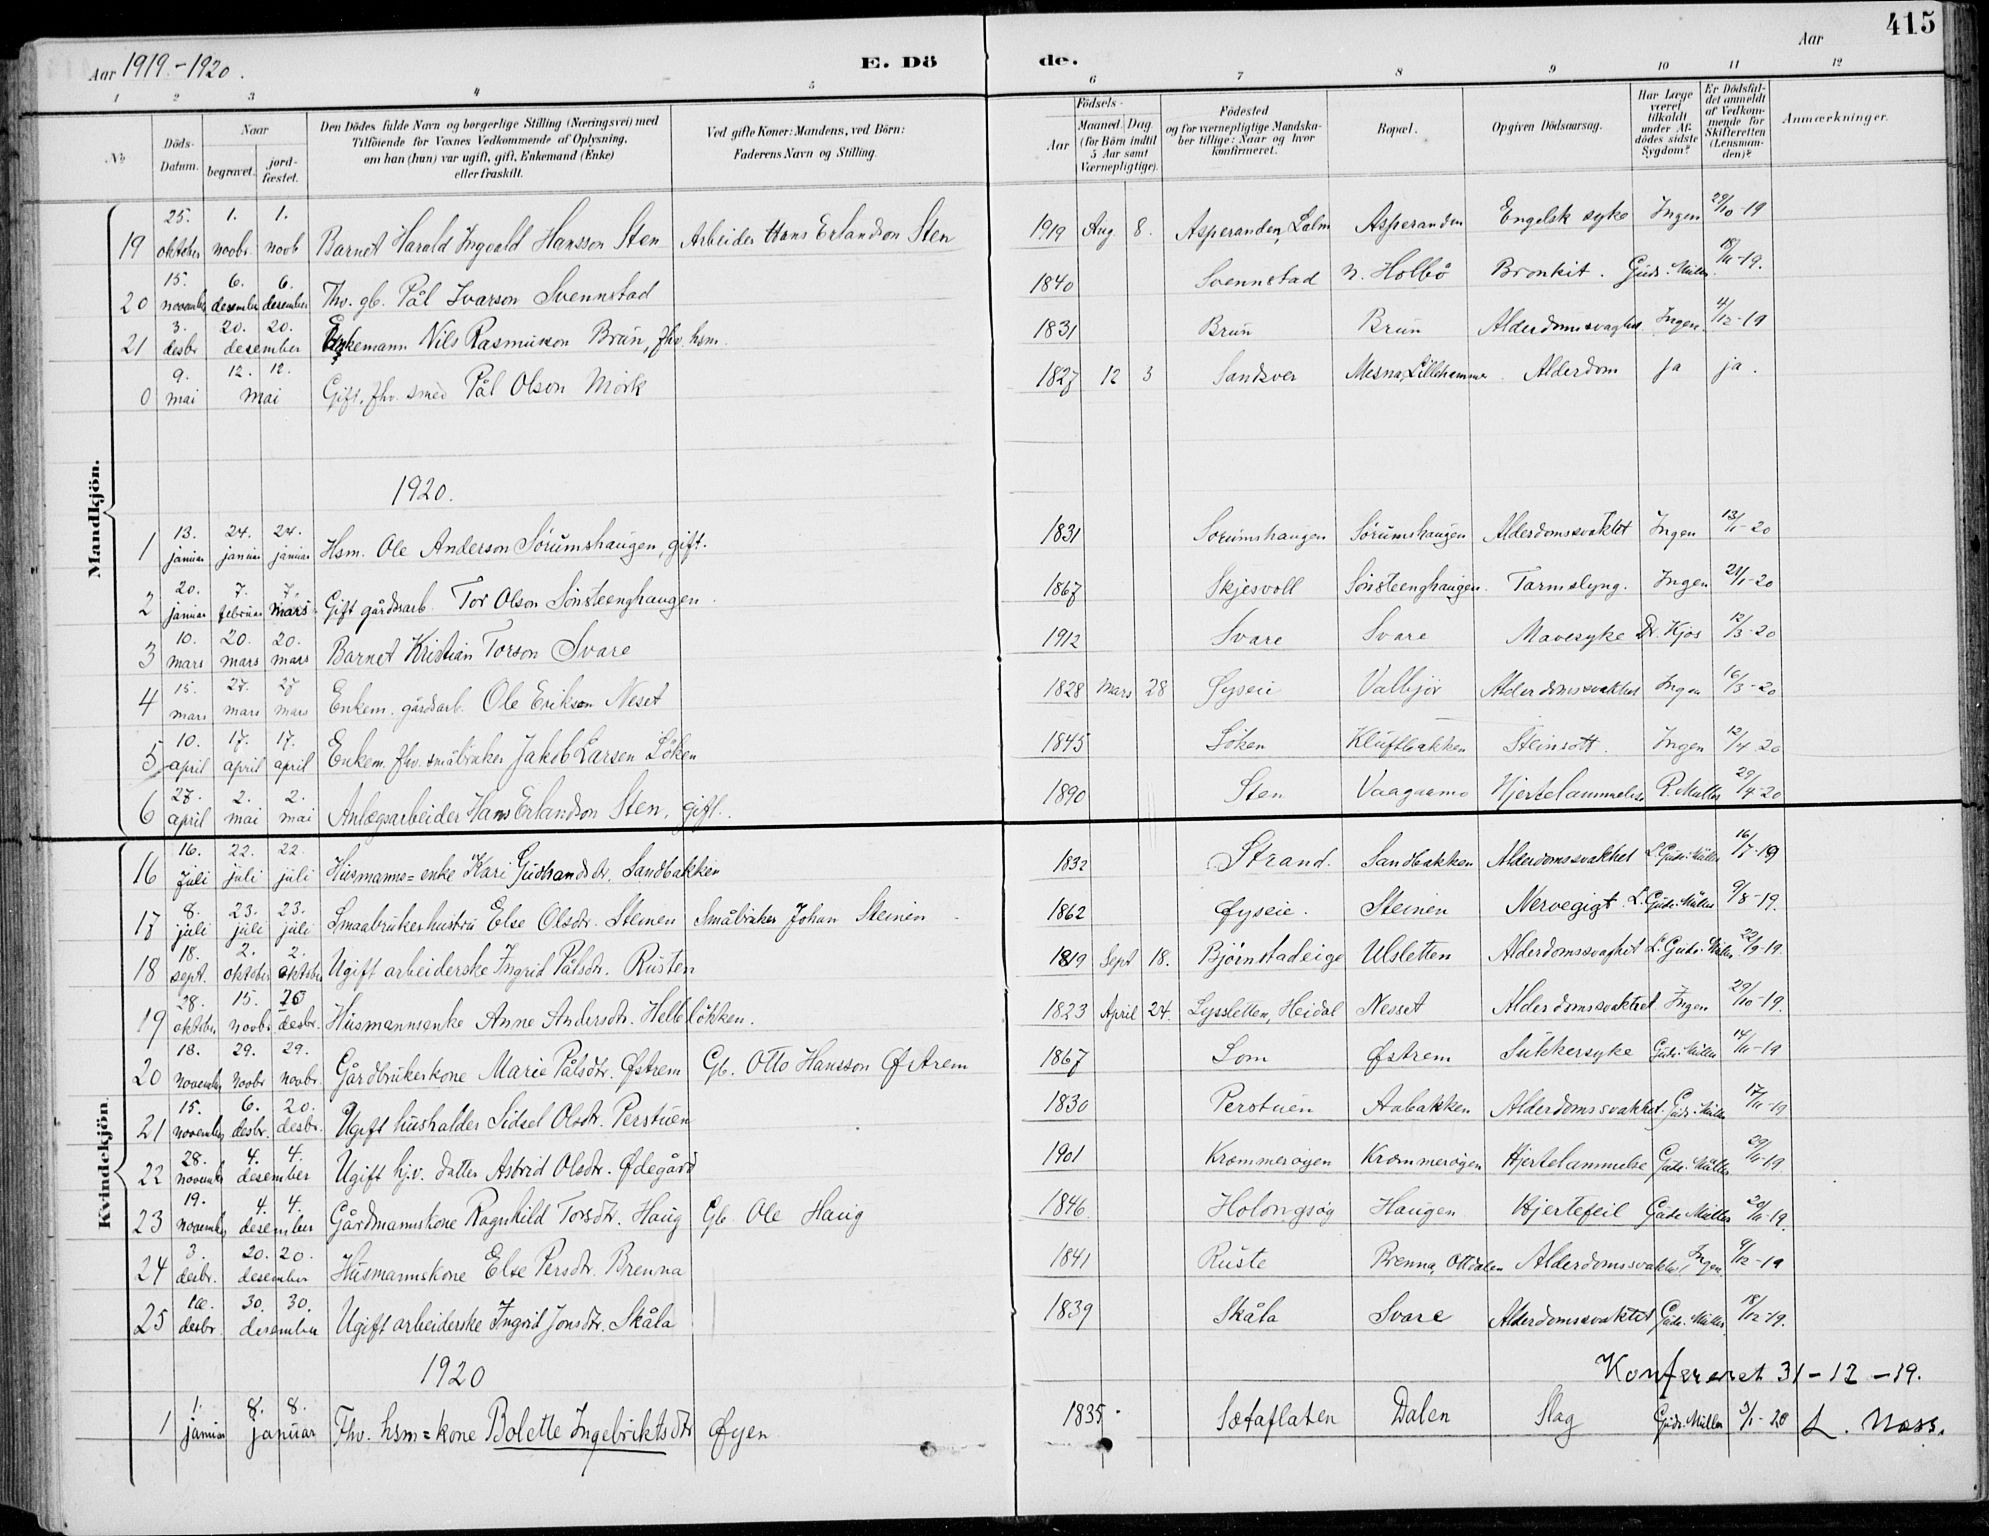 415
Aar 1919.-1920. E. Dö de. Aar
1 2 3 4 5 6 7 8 9 10 11 12
№ Döds-Datum. Naar begravet. jord-fæstet. Den Dödes fulde Navn og borgerlige Stilling (Næringsvei) med Tilföiende for Voxnes Vedkommende af Oplysning, om han (hun) var ugift, gift, Enkemand (Enke) eller fraskilt. Ved gifte Koner: Mandens, ved Börn: Faderens Navn og Stilling. Födsels- Aar Maaned. Dag. (for Börn indtil 5 Aar samt Værnepligtige). Födested og for værnepligtige Mandskaber tillige: Naar og hvor konfirmeret. Bopæl. Opgiven Dödsaarsag. Har Læge været tilkaldt under Afdödes sidste Sygdom? Er Dödsfaldet anmeldt af Vedkommende for Skifteretten (Lensmanden)? Anmærkninger.
Mandkjön.
19 25. oktober 1. novbr. 1. novb Barnet Harald Ingvald Hansson Sten Arbeider Hans Erlandson Sten 1919 Aug. 8. Asperanden, Lalm Asperanden Engelsk syke Ingen 29/10-19
20 15. november 6. desember 6. desember Fhv. gb. Pål Ivarson Svennstad 1840 Svennstad n. Holbö Bronkit. Gudr. Müller 18/11-19.
21 3. desbr 20. 20. desember Enkemann Nils Rasmusson Brun, fhv. hsm. 1831 Brun Brun Alderdomsvaghet Ingen 4/12-19
0 9. mai 12. 12. mai Gift, fhv. smed Pål Olson Mörk 1827 12 3 Sandsver Mesna, Lillehammer. Alderdom ja ja.
1920.
1 13. januar 24. januar 24. januar Hsm. Ole Anderson Sörumshaugen, gift. 1831 Sorumshaugen Sörumshaugen Alderdomssvakhet Ingen 13/1-20
2 20. januar 7. februar 7. mars Gift gårdsarb. Tor Olson Sönsteenghaugen. 1867 Skjesvoll Sönsteenghaugen. Tarmslyng. Ingen 21/1-20
3 10. mars 20. mars 20. mars Barnet Kristian Torson Svare 1912 Svare Svare Mavesyke Dr. Kjos 12/3-20
4 15. mars 27. mars 27 mars Enkem. gårdsarb. Ole Erikson Neset 1828 Mars 28 Øyseie Valbjör Alderdomssvakhet Ingen 16/3-20
5 10. april 17. april 17. april Enkem. fhv. småbruker Jakob Larsen Löken 1845 Löken Kluftbakken Steinsott. Ingen 12/4-20
6 27. april 2. mai 2. mai Anlægsarbeider Hans Erlandson Sten, gift. 1890 Sten Vaagaamo Hjertelammelse P. Müller 29/4-20
Kvindekjön.
16 16. juli 22. juli 22 juli Husmanns=enke Kari Gudbrandsdtr. Sandbakken 1832 Strand. Sandbakken Alderdomssvakhet L. Gudr. Müller 16/7-19
17 8. juli 23. juli 23. juli Smaabrukerhustru Else Olsdtr. Steinen Småbruker Johan Steinen 1862 Øyseie. Steinen Nervegigt L. Gudr. Müller 9/8-19.
18 18. sept. 2. oktober 2. oktober Ugift arbeiderske Ingrid Pålsdtr. Rusten 1819 Sept 18. Bjørnstadeige Ulsletten Alderdomssvaghet L. Gudr. Müller 22/9-19.
19 28. oktober 15. novbr. 20 desbr. Husmannsenke Anne Andersdtr. Hellelökken. 1823 April 24. Lyssletten, Heidal Nesset Alderdomssvakhet Ingen 29/10-19.
20 18. november 29. novbr 29. novbr. Gårdbrukerkone Marie Pålsdtr. Øfstrem Gb. Otto Hansson Øfstrem 1867 Lom Øfstrem Sukkersyke Gudr. Müller 14/11-19
21 15. november 6. desbr. 20. desbr. Ugift husholder Sidsel Olsdtr. Perstuen 1830 Perstuen Aabakken Alderdomssvakhet Gudr. Müller 17/11-19
22 28. november 4. 4. desember Ugift hjv. datter Astrid Olsdtr. Ødegård 1901 Krommeröyen Krommeröyen Hjertelammelse Gudr. Müller 29/11-19.
23 19. november 4. 4. desember Gårdmannskone Ragnhild Torsdtr. Haug Gb. Ole Haug 1846. Holongsöy Haugen Hjertefeil Gudr. Müller 20/11-19.
24 3. desbr. 20. 20. desember Husmannskone Else Persdtr. Brenna 1841 Ruste Brenna, Ottdalen Alderdomssvakhet, Ingen 9/12-19
25 desbr. 30. 30. desember Ugift arbeiderske Ingrid Jonsdtr. Skåla 1839 Skåla Svare Alderdomssvakhet Gudr. Müller 18/12-19.
1920
Konfereret 31-12-19.
1 1. januar 8. 8. januar Fhv. hsm=kone Bolette Ingebriktsdtr Øyen 1835. Sætaflaten Dalen Slag Gudr. Müller 3/1-20 L. Næss.